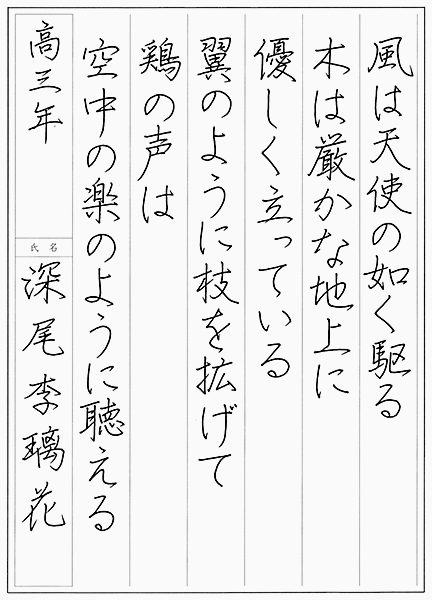 風は天使の如く駆る
木は厳かな地上に
優しく立っている
翼のように枝を拡げて
鶏の声は
空中の楽のように聴える
高三年
氏名
深尾李璃花